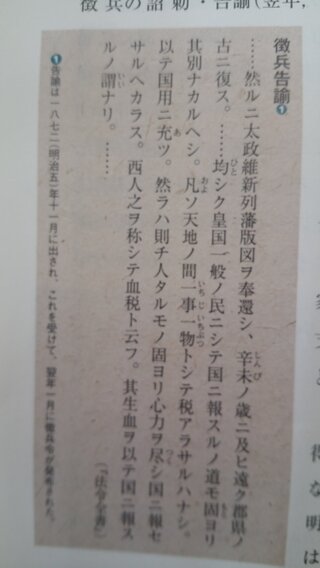 徴兵の詔勅・告諭（翌年，
徴兵告諭❶
……然ルニ太政維新列藩版図ヲ奉還シ、辛未ノ歳ニ及ヒ遠ク郡県ノ
古ニ復ス。……均シク皇国一般ノ民ニシテ国ニ報スルノ道モ固ヨリ
其別ナカルヘシ。凡ソ天地ノ間一事一物トシテ税アラサルハナシ。
以テ国用ニ充ツ。然ラハ則チ人タルモノ固ヨリ心力ヲ尽シ国ニ報セ
サルヘカラス。西人之ヲ称シテ血税ト云フ。其生血ヲ以テ国ニ報ス
ルノ謂ナリ。……
（『法令全書』）
❶告諭は一八七二（明治五）年十一月に出され、これを受けて、翌年一月に徴兵令が発布された。